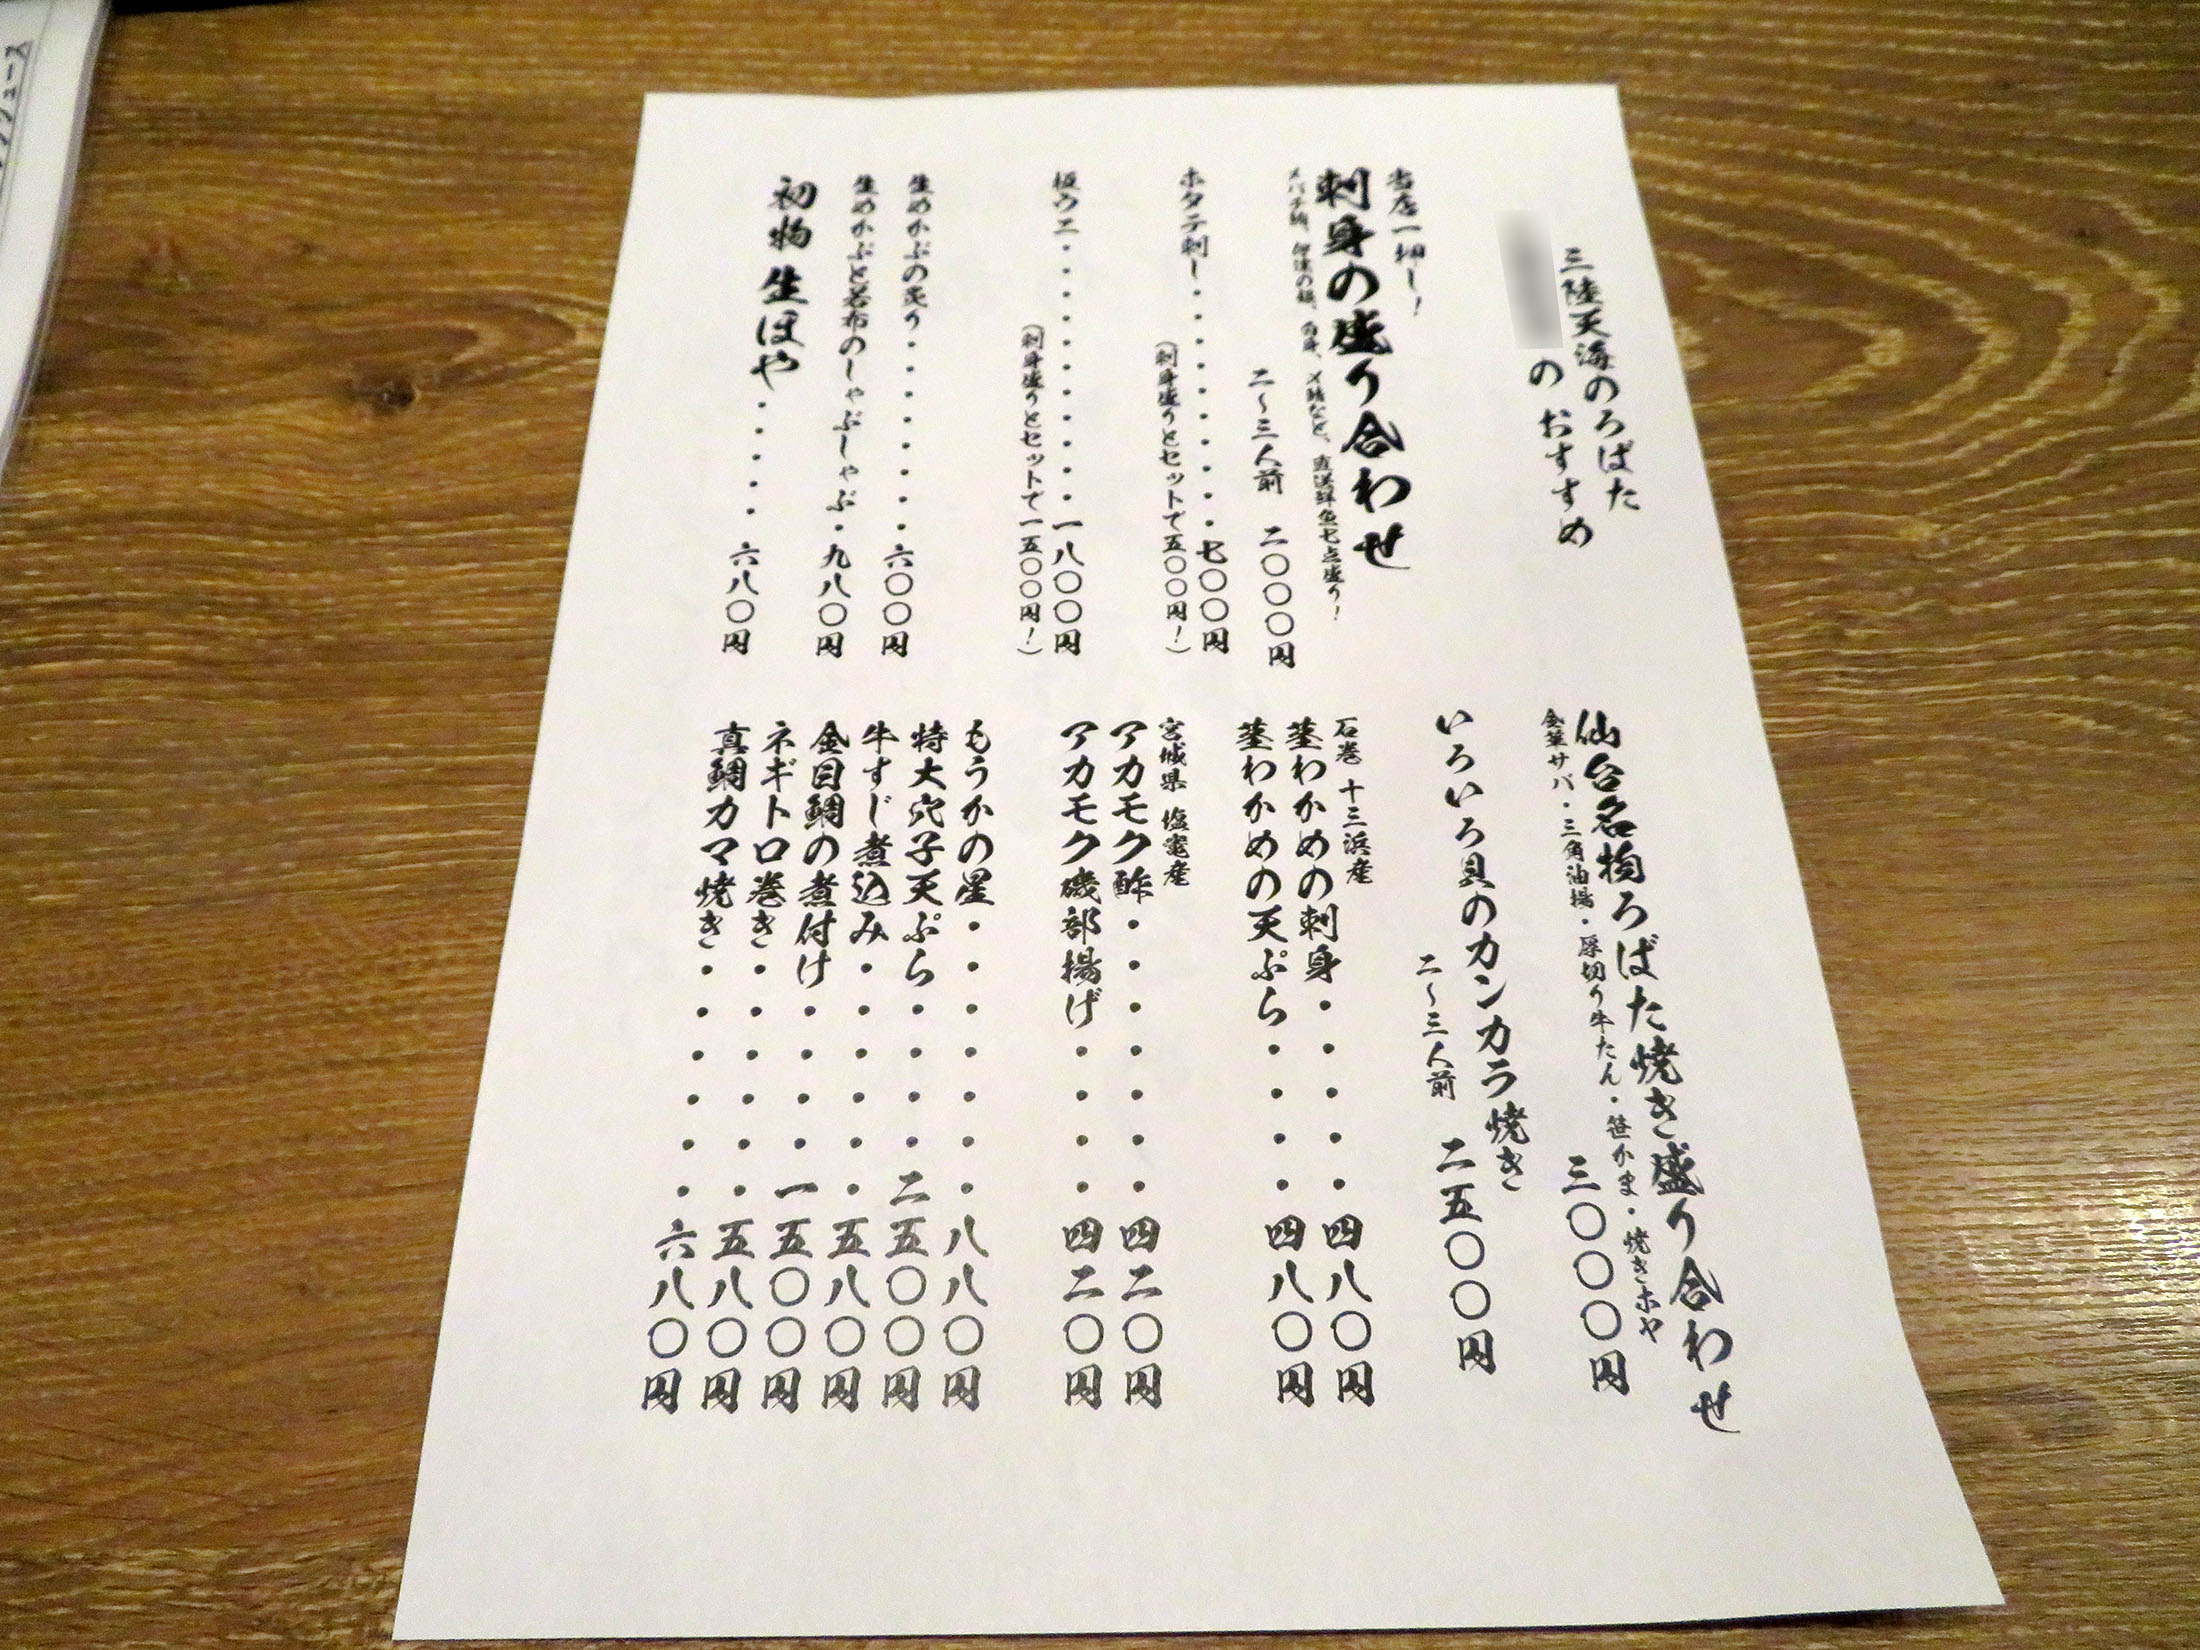 三陸天海のろばた
のおすすめ
当店一押し!
刺身の盛り合わせ
メバチ鮪、白身、〆鯖など、直送鮮魚七点盛り!
二~三人前 二〇〇〇円
ホタテ刺し・・・・・・・・・・七〇〇円
(刺身盛りとセットで五〇〇円!)
板ウニ・・・・・・・・・・・一八〇〇円
(刺身盛りとセットで一五〇〇円!)
生めかぶの炙り・・・・・・・・六〇〇円
生めかぶと若布のしゃぶしゃぶ・九八〇円
初物 生ほや・・・・・六八〇円
仙台名物ろばた焼き盛り合わせ
金華サバ・三角油揚・厚切り牛たん・笹かま・焼きホヤ
三〇〇〇円
いろいろ貝のカンカラ焼き
二~三人前 二五〇〇円
石巻 十三浜産
茎わかめの刺身・・・・・四八〇円
茎わかめの天ぷら・・・・四八〇円
宮城県 塩竈産
アカモク酢・・・・・・・四二〇円
アカモク磯部揚げ・・・・四二〇円
もうかの星・・・・・・・八八〇円
特大穴子天ぷら・・・・二五〇〇円
牛すじ煮込み・・・・・・五八〇円
金目鯛の煮付け・・・・一五〇〇円
ネギトロ巻き・・・・・・五八〇円
真鯛カマ焼き・・・・・・六八〇円